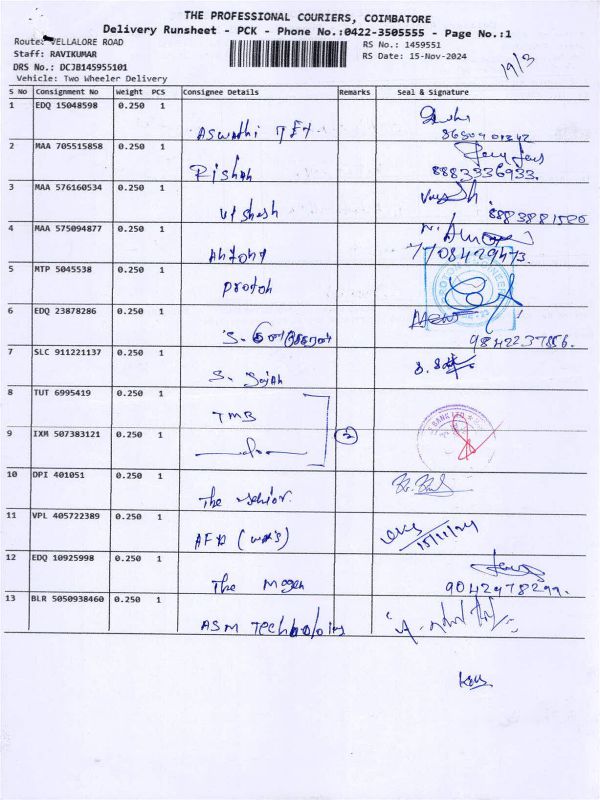 THE PROFESSIONAL COURIERS, COIMBATORE
Delivery Runsheet - PCK - Phone No.:0422-3505555 - Page No.:1
Route: VELLALORE ROAD
RS No.: 1459551
Staff: RAVIKUMAR
RS Date: 15-Nov-2024
19/3
DRS No.: DCJB145955101
Vehicle: Two Wheeler Delivery
S No Consignment No Weight PCS Consignee Details Remarks Seal & Signature
1 EDQ 15048598 0.250 1
Aswathi TEX
2 MAA 705515858 0.250 1
Rishab 8883336933.
3 MAA 576160534 0.250 1
8883881586
4 MAA 575094877 0.250 1
Antony 7708429473.
5 MTP 5045538 0.250 1
Proton
6 EDQ 23878286 0.250 1
S. 9842237856.
7 SLC 911221137 0.250 1
S. Sajah
8 TUT 6995419 0.250 1
TMB
9 IXM 507383121 0.250 1 2
BANK LTD
10 DPI 401051 0.250 1
The Senior.
11 VPL 405722389 0.250 1
15/11/24
12 EDQ 10925998 0.250 1
The 9042978299.
13 BLR 5050938460 0.250 1
ASM Technologies